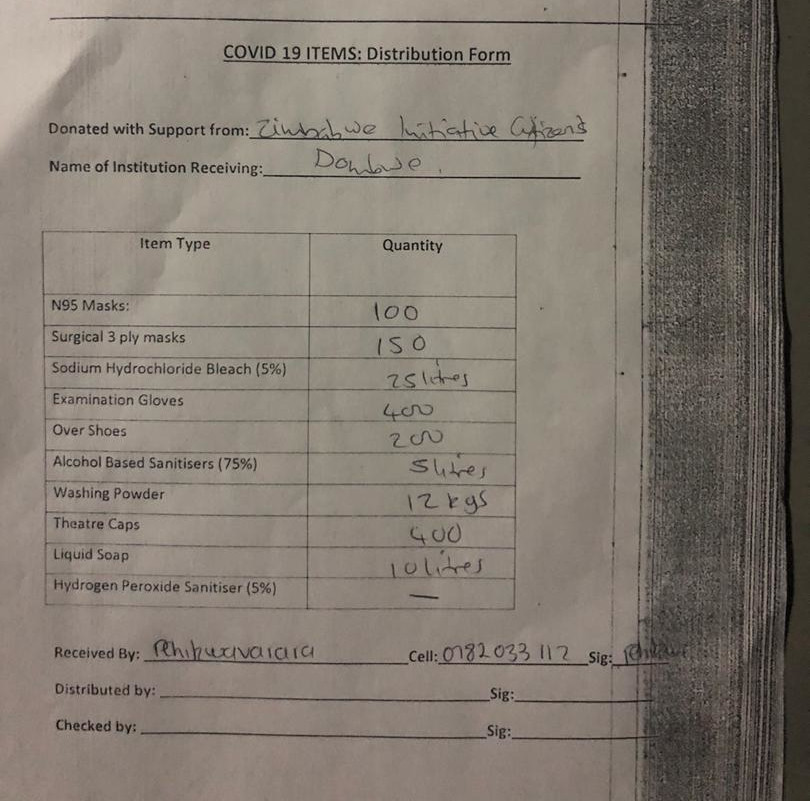 COVID 19 ITEMS: Distribution Form
Donated with Support from: Zimbabwe Initiative Citizens
Name of Institution Receiving: Dombwe.
Item Type Quantity
N95 Masks: 100
Surgical 3 ply masks 150
Sodium Hydrochloride Bleach (5%) 25 litres
Examination Gloves 400
Over Shoes 200
Alcohol Based Sanitisers (75%) 5 litres
Washing Powder 12 kgs
Theatre Caps 400
Liquid Soap 10 litres
Hydrogen Peroxide Sanitiser (5%) —
Received By: Cell: 0782 033 112 Sig:
Distributed by: Sig:
Checked by: Sig: